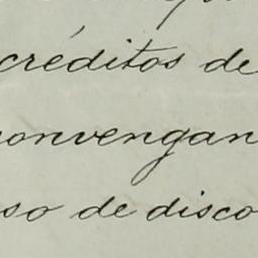 créditos de
convengan
so de disco